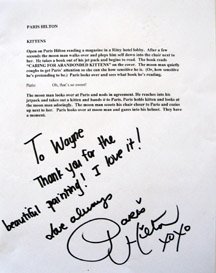 PARIS HILTON
KITTENS
Open on Paris Hilton reading a magazine in a Ritzy hotel lobby. After a few
seconds the moon man walks over and plops him self down into the chair next to
her. He takes a book out of his jet pack and begins to read. The book reads
"CARING FOR ABANDONED KITTENS" on the cover. The moon man quietly
coughs to get Paris' attention so she can see how sensitive he is. (Or, how sensitive
he's pretending to be.) Paris looks over and sees what book he's reading.
Paris: Oh, that's so sweet!
The moon man looks over at Paris and nods in agreement. He reaches into his
jetpack and takes out a kitten and hands it to Paris. Paris holds kitten and looks at
the moon man adoringly. The moon man scoots his chair closer to Paris and cuts
up next to her. Paris looks over at moon man and gazes into his helmet. They have
a moment.
To Wayne
Thank you for the
beautiful painting! I love it!
Love always
Paris
Hilton
xoxo